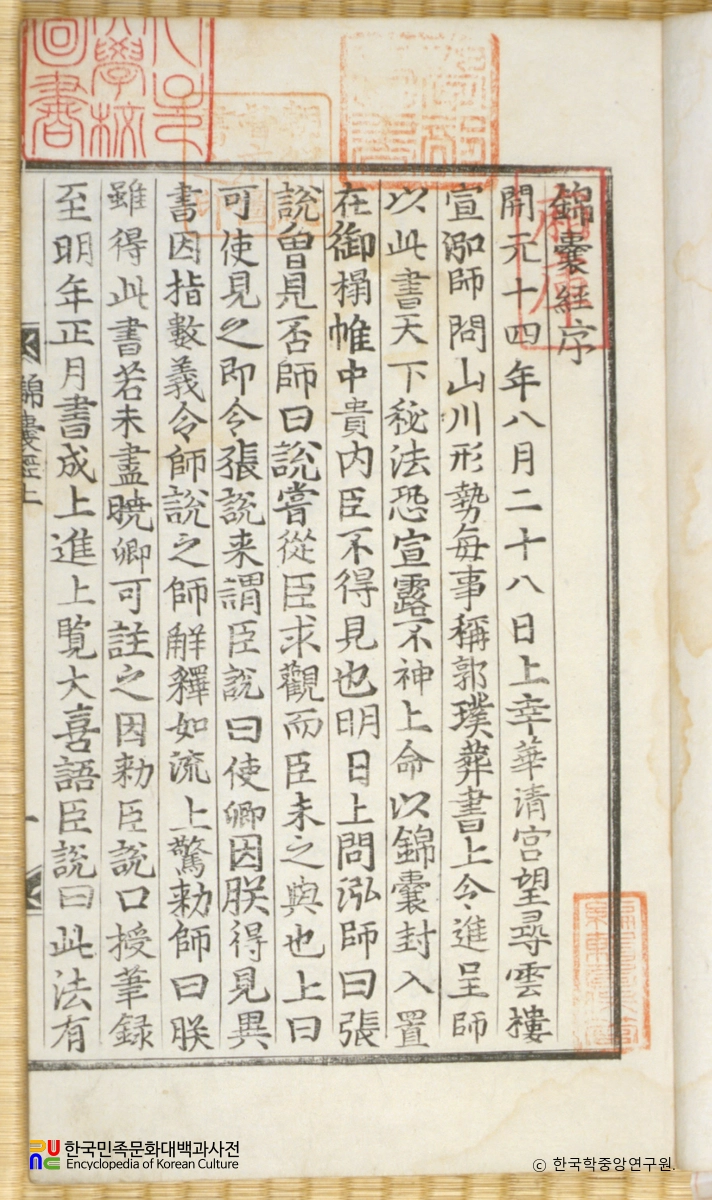 錦囊經序
開元十四年八月二十八日上幸華清宮望尋雲樓
宣泓師問山川形勢每事稱郭璞葬書上令進呈師
以此書天下秘法恐宣露不神上命以錦囊封入置
在御榻帷中貴內臣不得見也明日上問泓師曰張
說曾見否師曰說嘗從臣求觀而臣未之與也上曰
可使見之即令張說来謂臣說曰使卿因朕得見異
書因指數義令師說之師解釋如流上驚勑師曰朕
雖得此書若未盡曉卿可註之因勑臣說口授筆録
至明年正月書成上進上覧大喜語臣說曰此法有
錦囊經上
一
學校
圖書
한국민족문화대백과사전
Encyclopedia of Korean Culture
© 한국학중앙연구원.